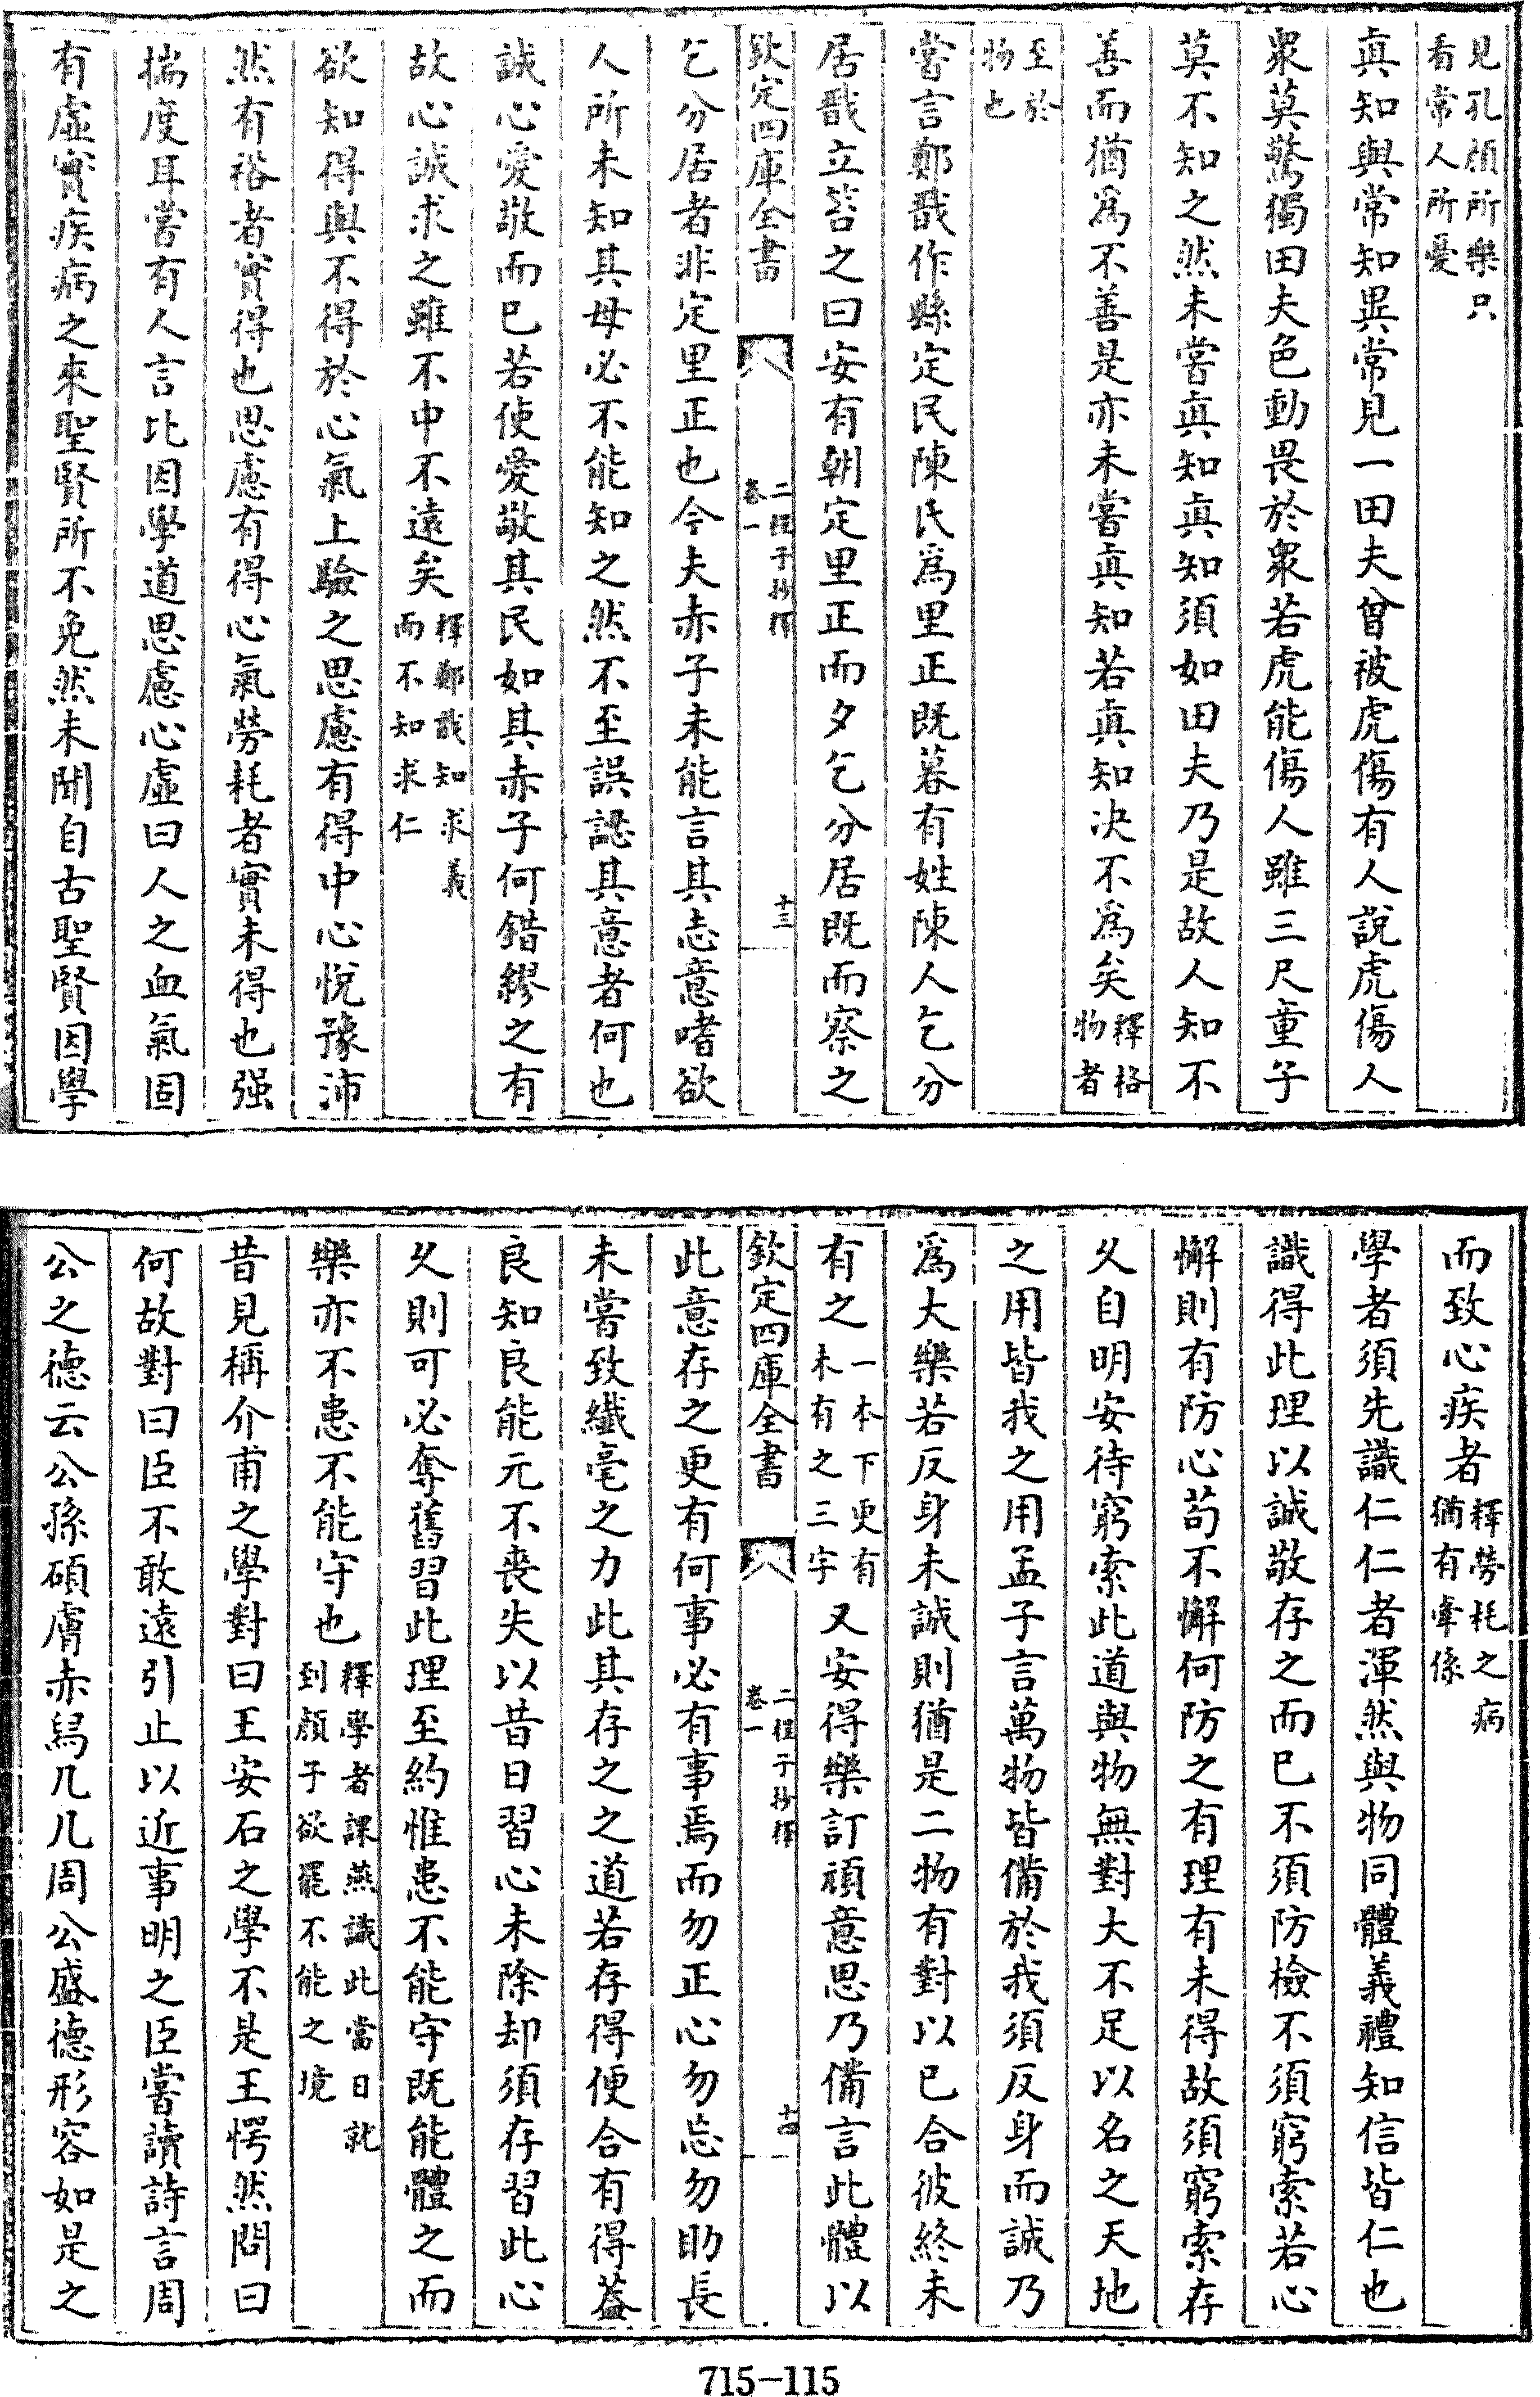 見孔顔所樂只
看常人所憂
真知與常知異常見一田夫曾被虎傷有人說虎傷人
衆莫驚獨田夫色動畏於衆若虎能傷人雖三尺童子
莫不知之然未嘗真知真知須如田夫乃是故人知不
善而猶爲不善是亦未嘗真知若真知决不爲矣釋格
物者
至於
物也
嘗言鄭戩作縣定民陳氏爲里正既暮有姓陳人乞分
居戩立笞之曰安有朝定里正而夕乞分居既而察之
欽定四庫全書
二程子抄釋
卷一
十三
乞分居者非定里正也今夫赤子未能言其志意嗜欲
人所未知其母必不能知之然不至誤認其意者何也
誠心愛敬而已若使愛敬其民如其赤子何錯繆之有
故心誠求之雖不中不遠矣釋鄭戩知求義
而不知求仁
欲知得與不得於心氣上驗之思慮有得中心悅豫沛
然有裕者實得也思慮有得心氣勞耗者實未得也强
揣度耳嘗有人言比因學道思慮心虛曰人之血氣固
有虛實疾病之來聖賢所不免然未聞自古聖賢因學
而致心疾者釋勞耗之病
猶有牽係
學者須先識仁仁者渾然與物同體義禮知信皆仁也
識得此理以誠敬存之而已不須防檢不須窮索若心
懈則有防心苟不懈何防之有理有未得故須窮索存
久自明安待窮索此道與物無對大不足以名之天地
之用皆我之用孟子言萬物皆備於我須反身而誠乃
爲大樂若反身未誠則猶是二物有對以已合彼終未
有之一本下更有
未有之三字又安得樂訂頑意思乃備言此體以
欽定四庫全書
二程子抄釋
卷一
十四
此意存之更有何事必有事焉而勿正心勿忘勿助長
未嘗致纖毫之力此其存之之道若存得便合有得蓋
良知良能元不喪失以昔日習心未除却須存習此心
久則可必奪舊習此理至約惟患不能守既能體之而
樂亦不患不能守也釋學者課燕識此當日就
到顔子欲罷不能之境
昔見稱介甫之學對曰王安石之學不是王愕然問曰
何故對曰臣不敢遠引止以近事明之臣嘗讀詩言周
公之德云公孫碩膚赤舄几几周公盛德形容如是之
715-115